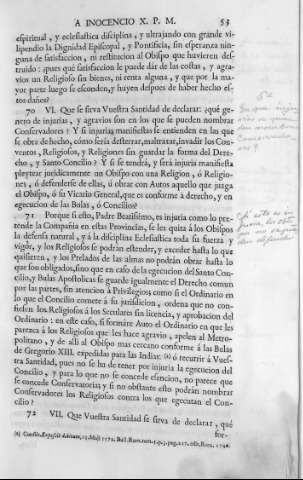 A INOCENCIO X. P. M. 53
espiritual, y eclesiastica disciplina, y ultrajando con grande vi-
lipendio la Dignidad Episcopal, y Pontificia, sin esperanza nin-
guna de satisfaccion, ni restitucion al Obispo que huvieren des-
truido: ¿pues qué satisfaccion le puede dár de las costas, y agra-
vios un Religioso sin bienes, ni renta alguna, y que por la ma-
yor parte luego se esconden, y huyen despues de haber hecho es-
tos daños?
70 VI. Que se sirva Vuestra Santidad de declarar: ¿qué ge-
nero de injurias, y agravios son en los que se pueden nombrar
Conservadores? Y si injurias manifiestas se entienden en las que
se obra de hecho, cómo sería desterrar, maltratar, invadir los Con-
ventos, Religiosos, y Religiones sin guardar la forma del Dere-
cho, y Santo Concilio? Y si se tendrá, y será injuria manifiesta
pleytear juridicamente un Obispo con una Religion, ó Religio-
nes, ó defenderse de ellas, ó obrar con Autos aquello que juzga
el Obispo, ó su Vicario General, que es conforme á derecho, y en
egecucion de las Bulas, ó Concilios?
71 Porque si esto, Padre Beatisimo, es injuria como lo pre-
tende la Compañia en estas Provincias, se les quita á los Obispos
la defensa natural, y á la disciplina Eclesiastica toda su fuerza y
vigór, y los Religiosos se podrán estender, y exceder hasta lo que
quisieren, y los Prelados de las almas no podrán obrar hasta lo
que son obligados, sino que en caso de la egecucion del Santo Con-
cilio, y Bulas Apostolicas se guarde igualmente el Derecho comun
por las partes, sin atencion á Privilegios como si el Ordinario en
lo que el Concilio comete á su jurisdicion, ordena que no con-
fiesen los Religiosos á los Seculares sin licencia, y aprobacion del
Ordinario: en este caso, si formáre Auto el Ordinario en que les
parezca á los Religiosos que les hace agravio, apelen al Metro-
politano, y de allí al Obispo mas cercano conforme á las Bulas
de Gregorio XIII. expedidas para las Indias: (a) ó recurrir á Vues-
tra Santidad, pues no se ha de tener por injuria la egecucion del
Concilio, y para lo que no se concede esencion, no parece que
se concede Conservatorias; y si no obstante esto podrán nombrar
Conservadores los Religiosos contra los que egecutan el Con-
cilio?
72 VII. Que Vuestra Santidad se sirva de declarar, qué
for-